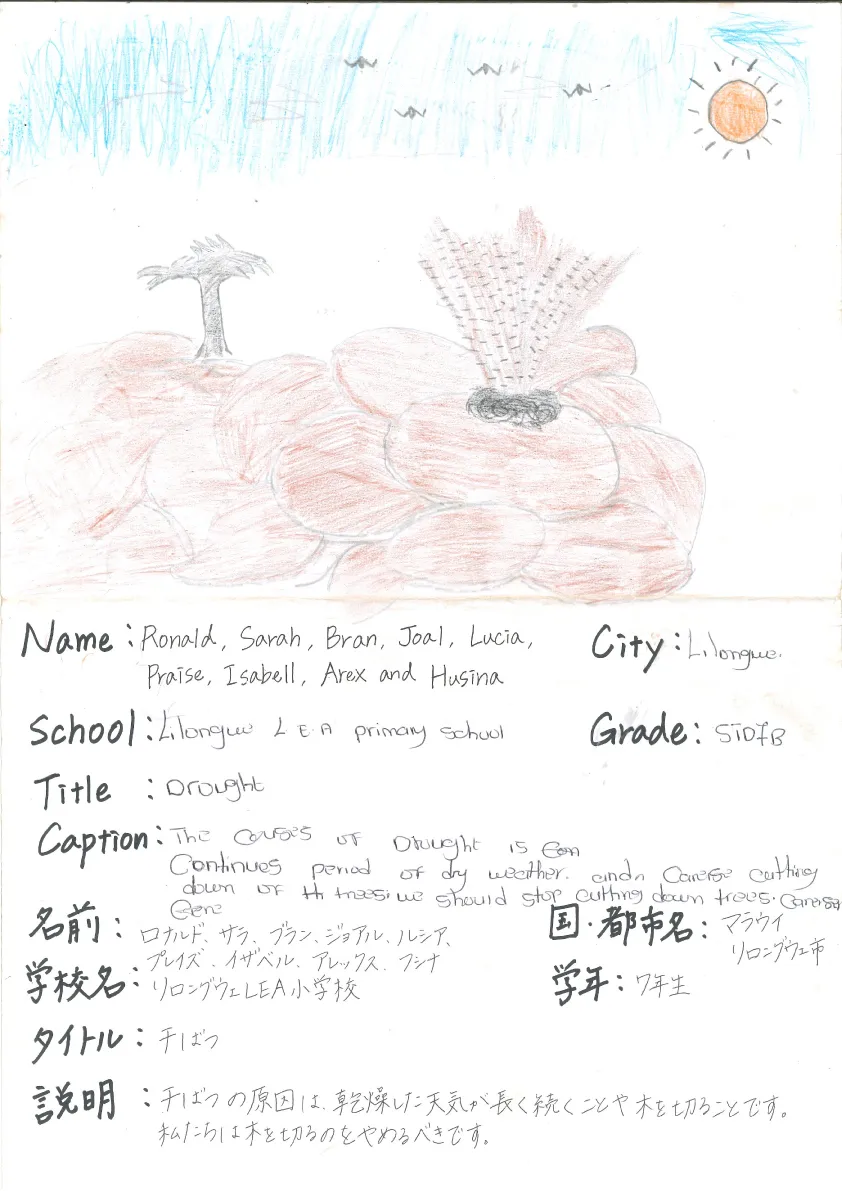 Name : Ronald, Sarah, Bran, Joal, Lucia,
Praise, Isabell, Arex and Husina
City : Lilongwe.
School : Lilongwe L E.A primary school
Grade : STD7B
Title : Drought
Caption : The causes of Drought is
Continues period of dry weather. cutting
down of trees. we should stop cutting down trees.
名前 : ロナルド、サラ、ブラン、ジョアル、ルシア、
プレイズ、イザベル、アレックス、フシナ
国・都市名 : マラウイ
リロングウェ市
学校名 : リロングウェLEA小学校
学年 : 7年生
タイトル : 干ばつ
説明 : 干ばつの原因は、乾燥した天気が長く続くことや木を切ることです。
私たちは木を切るのをやめるべきです。